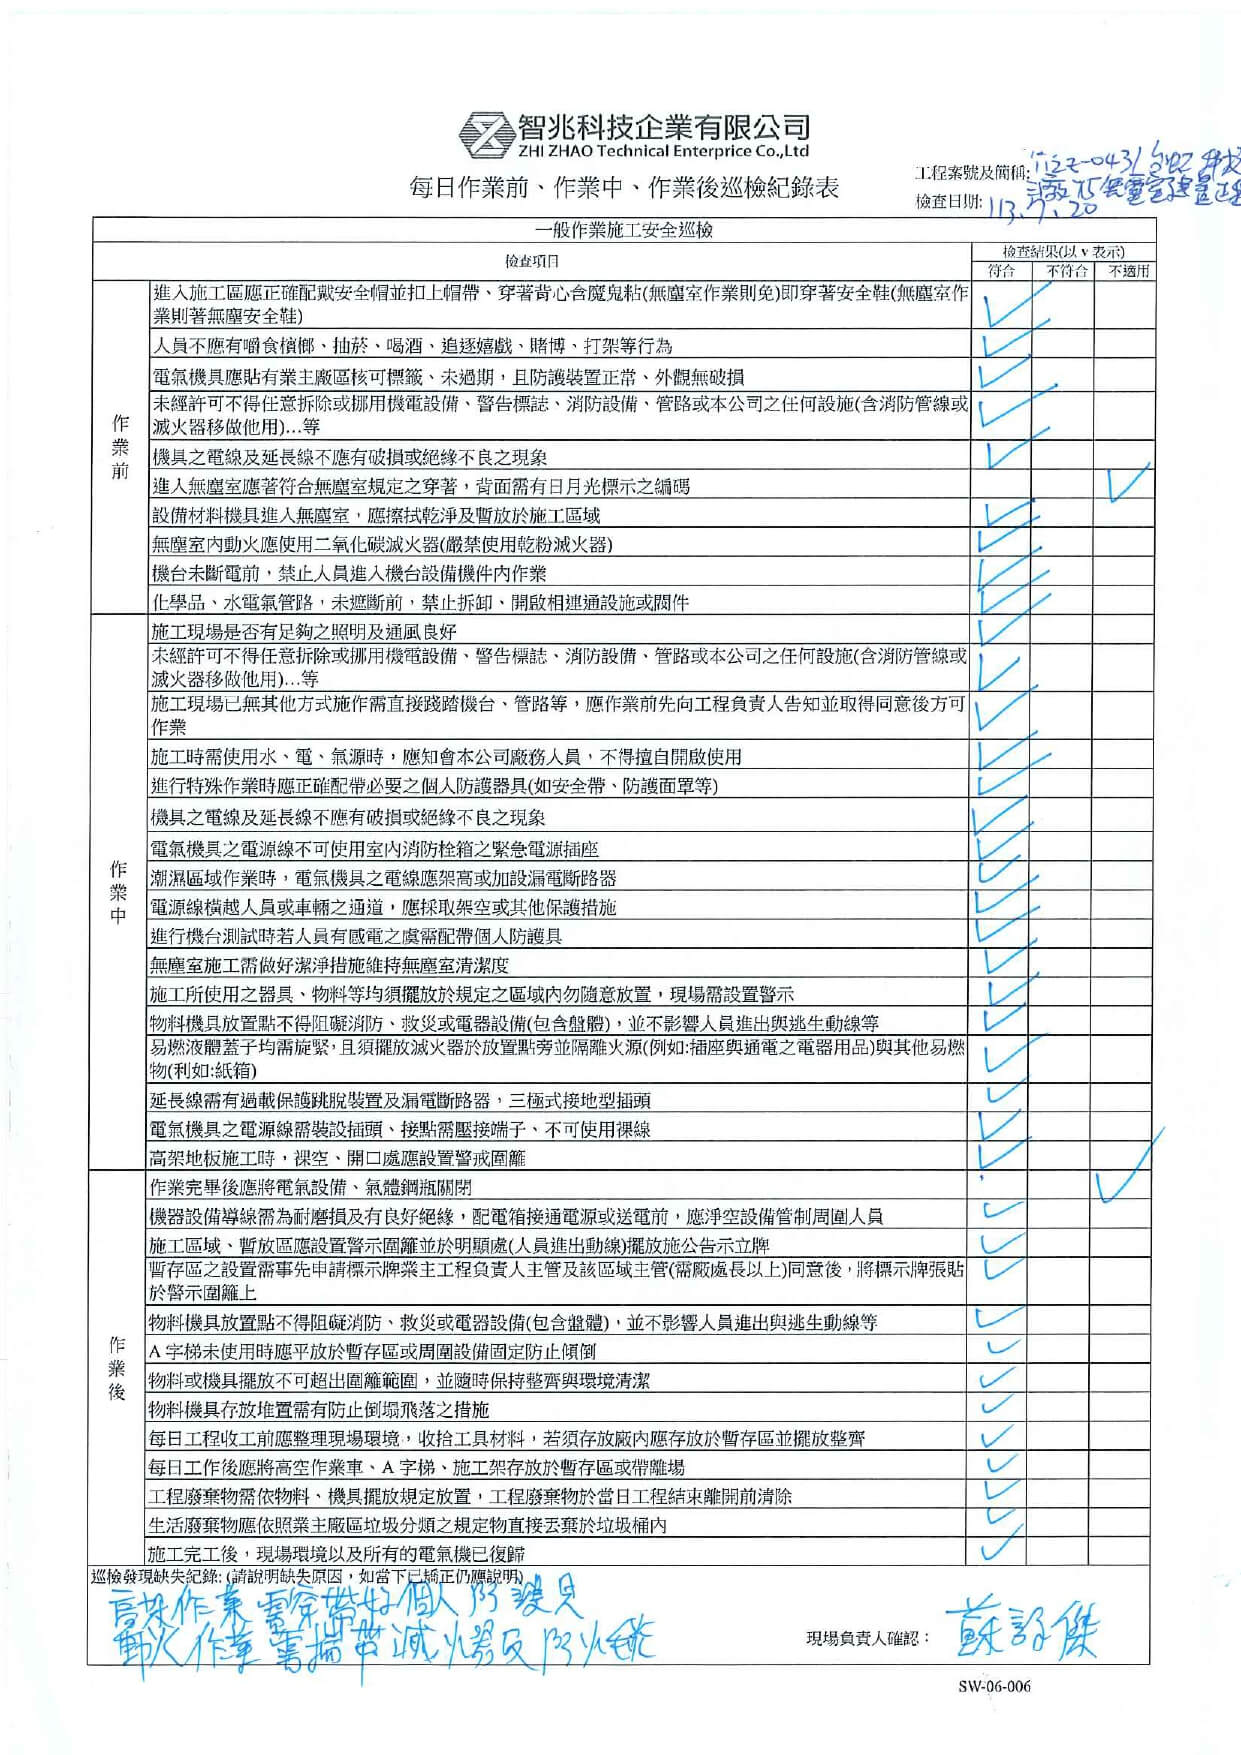 智兆科技企業有限公司
ZHI ZHAO Technical Enterprice Co.,Ltd
每日作業前、作業中、作業後巡檢紀錄表
工程案號及簡稱:
檢查日期: 113.7.20
一般作業施工安全巡檢
檢查項目
檢查結果(以 v 表示)
符合 不符合 不適用
作業前
進入施工區應正確配戴安全帽並扣上帽帶、穿著背心含魔鬼粘(無塵室作業則免)即穿著安全鞋(無塵室作
業則著無塵安全鞋)
人員不應有嚼食檳榔、抽菸、喝酒、追逐嬉戲、賭博、打架等行為
電氣機具應貼有業主廠區核可標籤、未過期，且防護裝置正常、外觀無破損
未經許可不得任意拆除或挪用機電設備、警告標誌、消防設備、管路或本公司之任何設施(含消防管線或
滅火器移做他用)…等
機具之電線及延長線不應有破損或絕緣不良之現象
進入無塵室應著符合無塵室規定之穿著，背面需有日月光標示之編碼
設備材料機具進入無塵室，應擦拭乾淨及暫放於施工區域
無塵室內動火應使用二氧化碳滅火器(嚴禁使用乾粉滅火器)
機台未斷電前，禁止人員進入機台設備機件內作業
化學品、水電氣管路，未遮斷前，禁止拆卸、開啟相連通設施或閥件
作業中
施工現場是否有足夠之照明及通風良好
未經許可不得任意拆除或挪用機電設備、警告標誌、消防設備、管路或本公司之任何設施(含消防管線或
滅火器移做他用)…等
施工現場已無其他方式施作需直接踐踏機台、管路等，應作業前先向工程負責人告知並取得同意後方可
作業
施工時需使用水、電、氣源時，應知會本公司廠務人員，不得擅自開啟使用
進行特殊作業時應正確配帶必要之個人防護器具(如安全帶、防護面罩等)
機具之電線及延長線不應有破損或絕緣不良之現象
電氣機具之電源線不可使用室內消防栓箱之緊急電源插座
潮濕區域作業時，電氣機具之電線應架高或加設漏電斷路器
電源線橫越人員或車輛之通道，應採取架空或其他保護措施
進行機台測試時若人員有感電之虞需配帶個人防護具
無塵室施工需做好潔淨措施維持無塵室清潔度
施工所使用之器具、物料等均須擺放於規定之區域內勿隨意放置，現場需設置警示
物料機具放置點不得阻礙消防、救災或電器設備(包含盤體)，並不影響人員進出與逃生動線等
易燃液體蓋子均需旋緊，且須擺放滅火器於放置點旁並隔離火源(例如:插座與通電之電器用品)與其他易燃
物(利如:紙箱)
延長線需有過載保護跳脫裝置及漏電斷路器，三極式接地型插頭
電氣機具之電源線需裝設插頭、接點需壓接端子、不可使用裸線
高架地板施工時，裸空、開口處應設置警戒圍籬
作業後
作業完畢後應將電氣設備、氣體鋼瓶關閉
機器設備導線需為耐磨損及有良好絕緣，配電箱接通電源或送電前，應淨空設備管制周圍人員
施工區域、暫放區應設置警示圍籬並於明顯處(人員進出動線)擺放施公告示立牌
暫存區之設置需事先申請標示牌業主工程負責人主管及該區域主管(需廠處長以上)同意後，將標示牌張貼
於警示圍籬上
物料機具放置點不得阻礙消防、救災或電器設備(包含盤體)，並不影響人員進出與逃生動線等
A 字梯未使用時應平放於暫存區或周圍設備固定防止傾倒
物料或機具擺放不可超出圍籬範圍，並隨時保持整齊與環境清潔
物料機具存放堆置需有防止倒塌飛落之措施
每日工程收工前應整理現場環境，收拾工具材料，若須存放廠內應存放於暫存區並擺放整齊
每日工作後應將高空作業車、A 字梯、施工架存放於暫存區或帶離場
工程廢棄物需依物料、機具擺放規定放置，工程廢棄物於當日工程結束離開前清除
生活廢棄物應依照業主廠區垃圾分類之規定物直接丟棄於垃圾桶內
施工完工後，現場環境以及所有的電氣機已復歸
巡檢發現缺失紀錄: (請說明缺失原因，如當下已矯正仍應說明)
高架作業需穿帶好個人防護具
動火作業需攜帶滅火器及防火毯
現場負責人確認：
SW-06-006